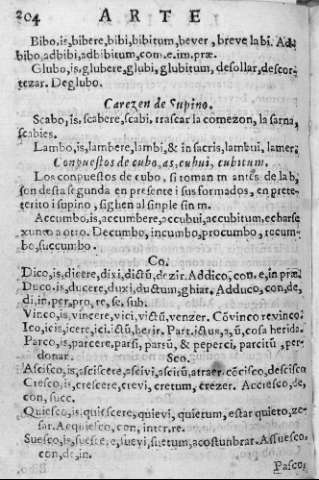 204 ARTE
Bibo,is,bibere,bibi,bibitum,bever, breve la bi. Ad
bibo,adbibi,adbibitum,com.e.im.præ.
Glubo,is,glubere,glubi,glubitum, desollar,descor
tezar. Deglubo.
Carezen de Supino.
Scabo,is,scabere,scabi, rrascar la comezon, la sarna,
scabies.
Lambo,is,lambere,lambi,& in sacris,lambui, lamer.
Conpuestos de cubo,as,cubui, cubitum.
Los conpuestos de cubo, si toman m antes de la b,
son desta segunda en presente i sus formados, en prete-
terito i supino, sighen al sinple sin m.
Accumbo,is,accumbere,accubui,accubitum,echarse
xunto a otro. Decumbo, incumbo,procumbo, recum-
bo,succumbo.
Co.
Dico,is,dicere,dixi,dictũ,dezir. Addico, con.e,in præ.
Duco.is,ducere,duxi,ductum,ghiar. Adduco,con,de,
di,in,per,pro,re,se,sub.
Vinco,is,vincere,vici,victũ,venzer. Cõvinco revinco.
Ico,icis,icere,ici,ictũ,herir. Part.ictus,a,ũ,cosa herida.
Parco,is,parcere,parsi, parsũ, & peperci, parcitũ ,per-
donar.
Sco.
Ascisco,is,asciscere,ascivi,ascitũ,atraer.cõcisco,descisco
Cresco,is,crescere,crevi, cretum, crezer. Accresco,de,
con, succ.
Quiesco,is,quiescere,quievi, quietum, estar quieto,ze-
sar.Acquiesco,con,inter,re.
Suesco,is,suescere,suevi,suetum,acostunbrar.Assuesco.
con,de,in.
Pasco,